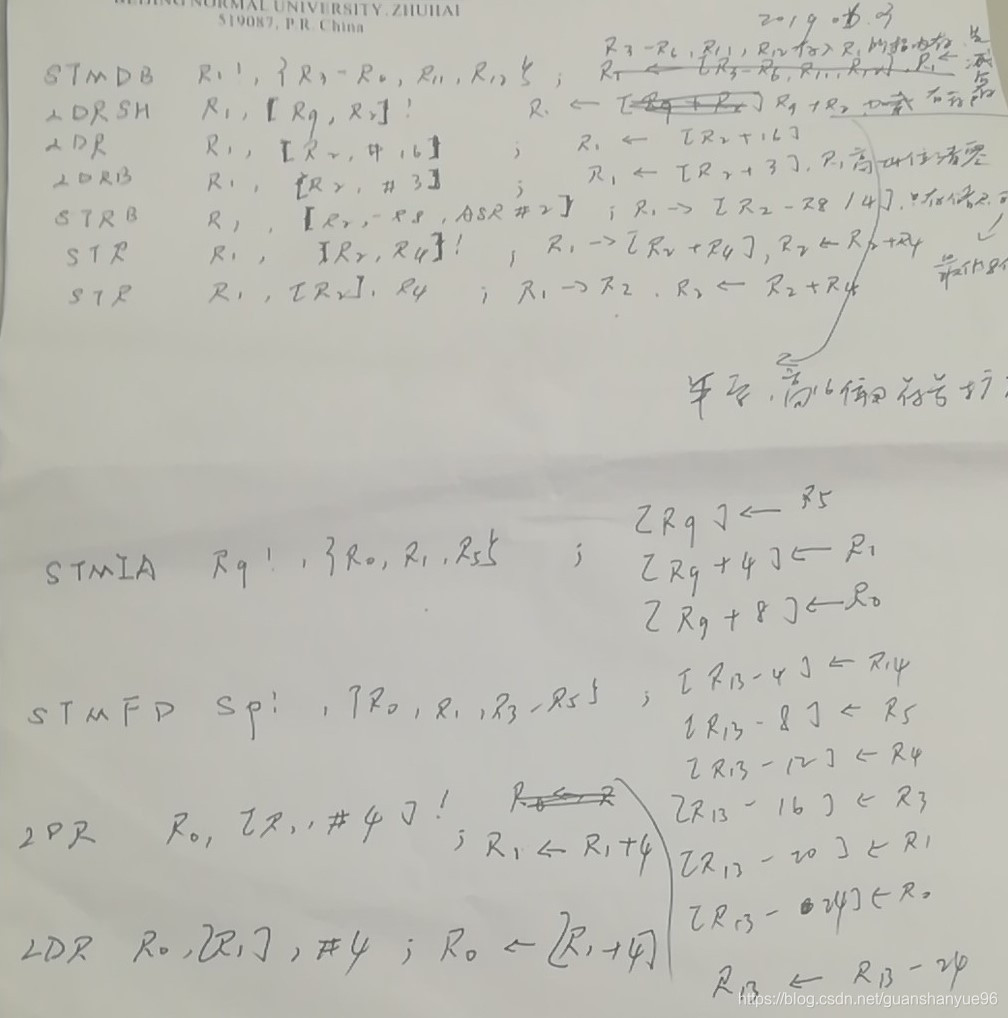 BEIJING NORMAL UNIVERSITY. ZHUHAI
519087, P.R. China
2019
R3-R6, R11, R12 存入 R1 所指内存
STMDB R1!, {R3-R6, R11, R12} ;
LDRSH R1, [R9, R2]! R1 ← [ ] R9+R2
LDR R1, [R2, #16] ; R1 ← [R2+16]
LDRB R1, [R2, #3] ; R1 ← [R2+3]. R1高24位清零
STRB R1, [R2, -R8, ASR #2] ; R1 → [R2-R8/4].
STR R1, [R2, R4]! ; R1 → [R2+R4], R2 ← R2+R4
STR R1, [R2], R4 ; R1 → R2. R2 ← R2+R4
半字, 高16位用符号扩
STMIA R9!, {R0, R1, R5} ; [R9] ← R5
[R9+4] ← R1
[R9+8] ← R0
STMFD Sp!, {R0, R1, R3-R5} ; [R13-4] ← R14
[R13-8] ← R5
[R13-12] ← R4
[R13-16] ← R3
[R13-20] ← R1
[R13-24] ← R0
R13 ← R13-24
LDR R0, [R1, #4]! ; R1 ← R1+4
LDR R0, [R1], #4 ; R0 ← [R1+4]
https://blog.csdn.net/guanshanyue96